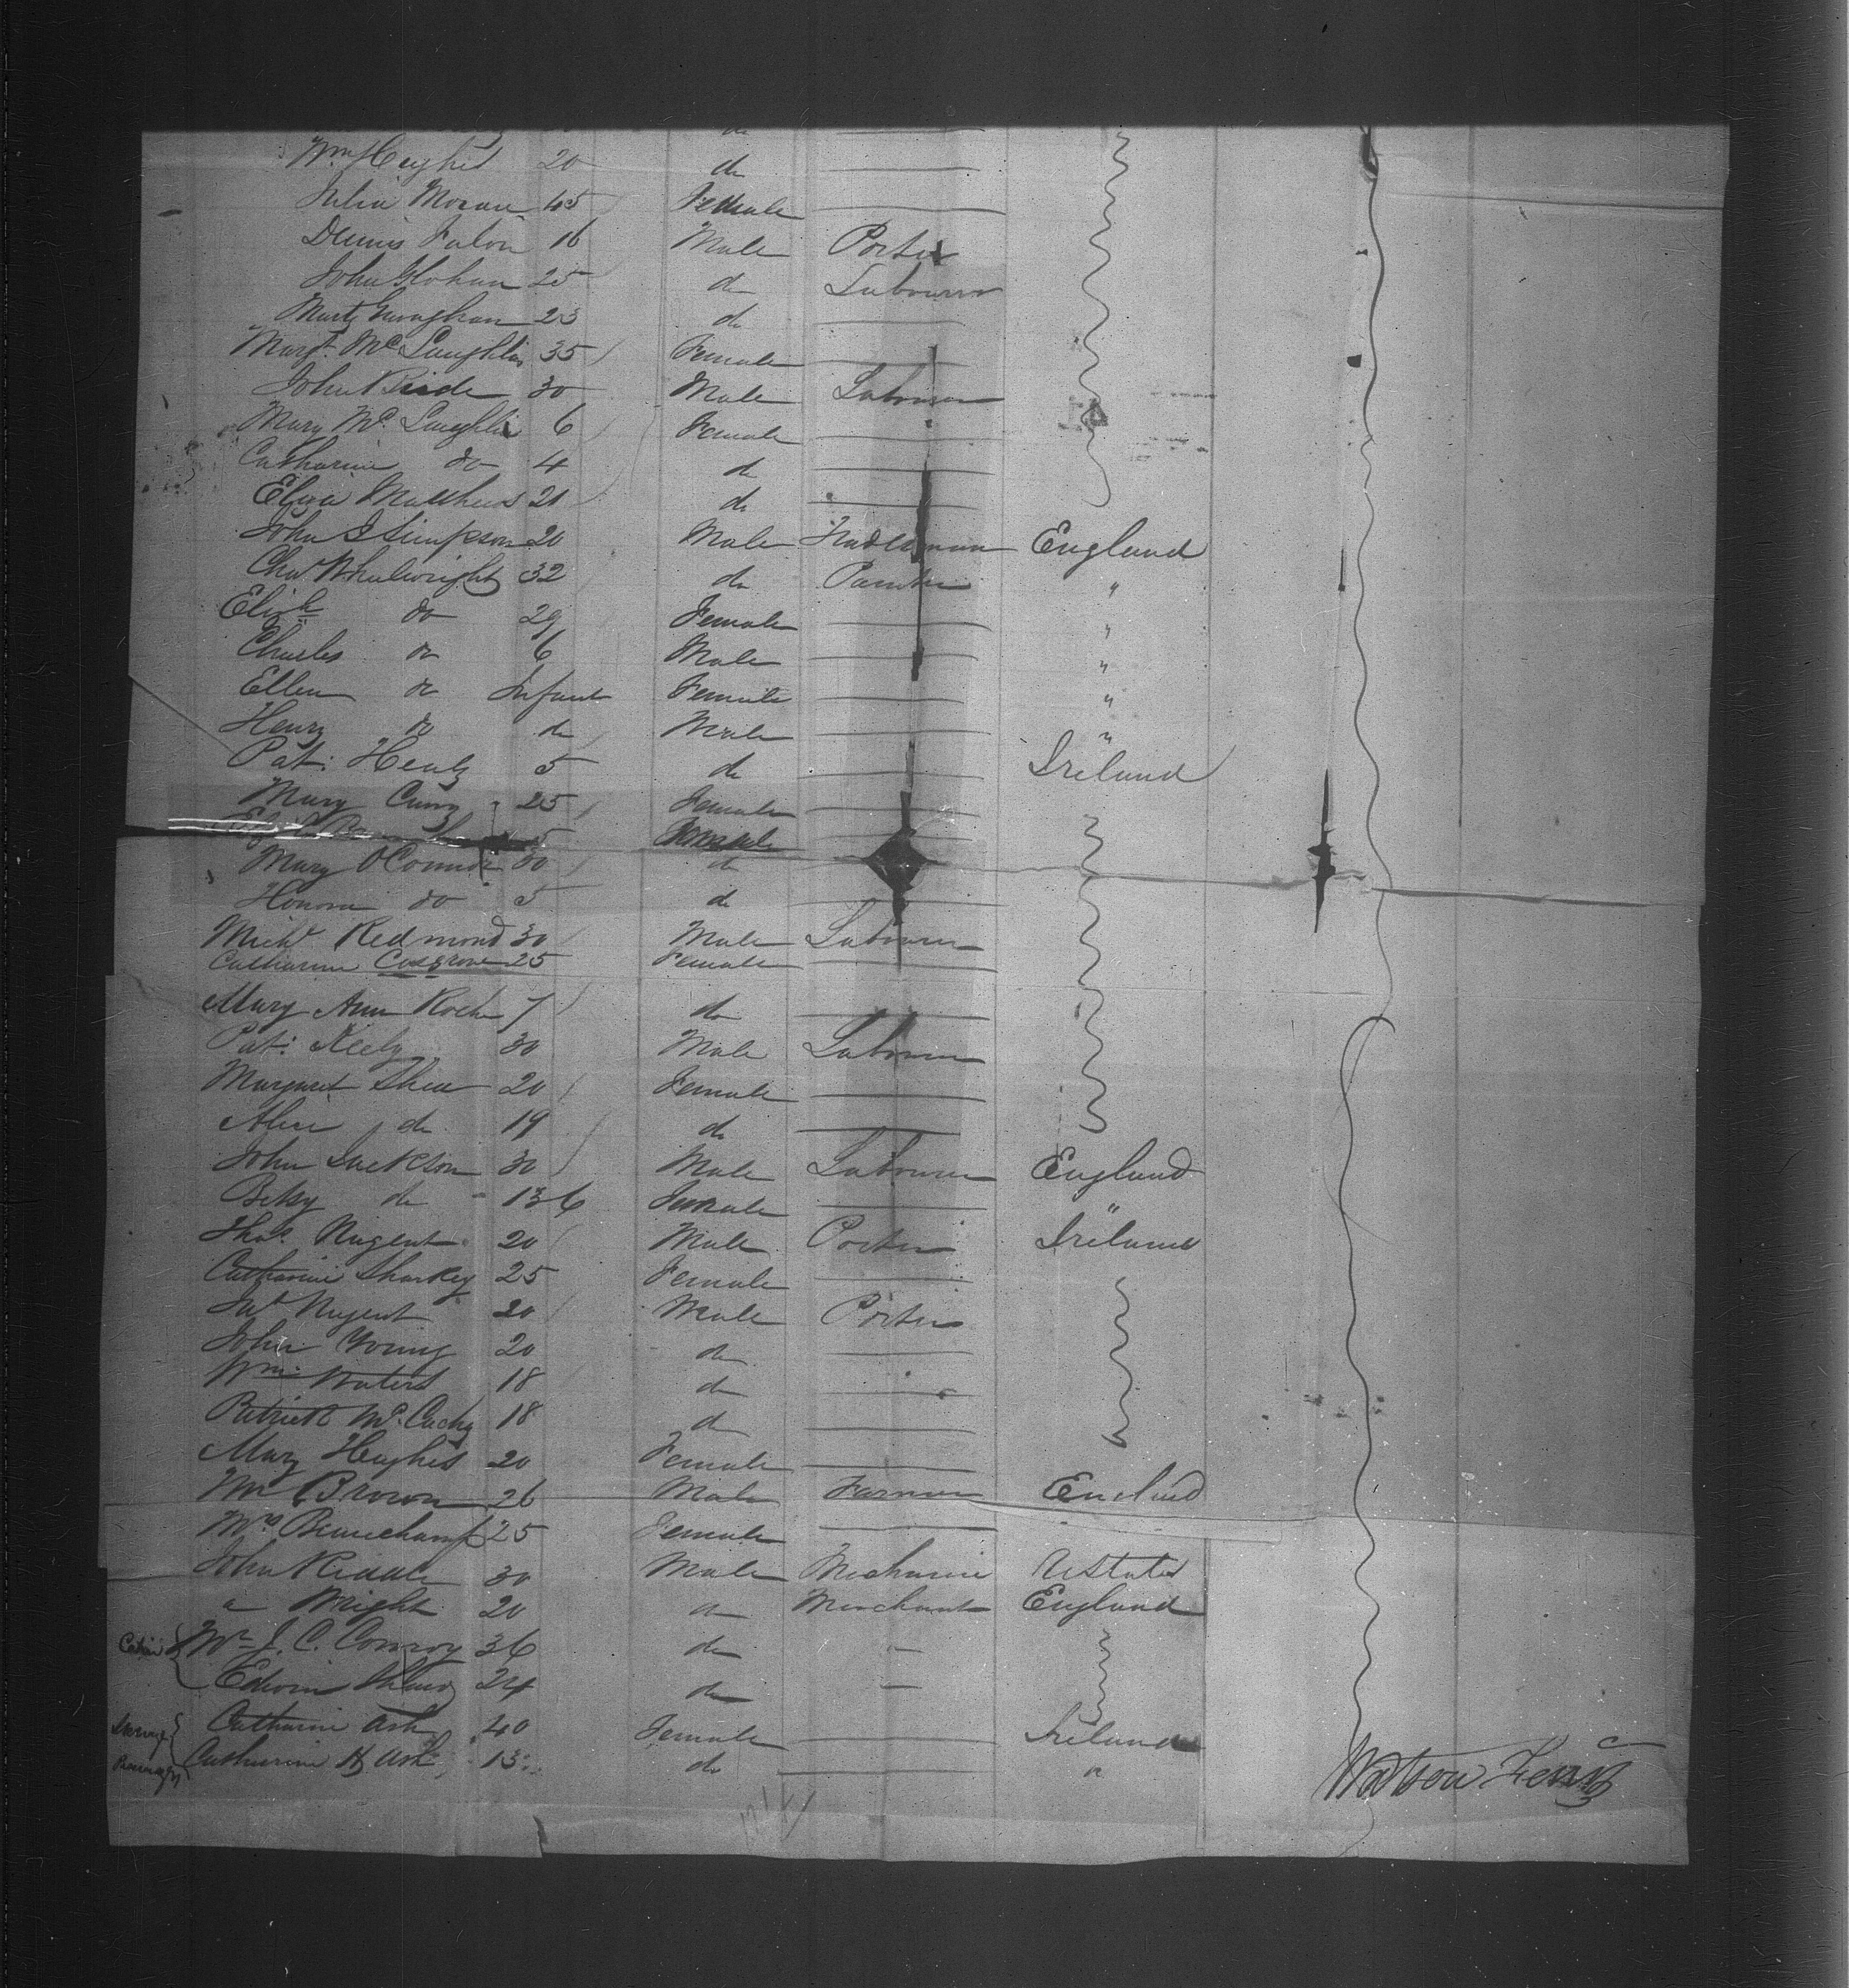 Wm Hughes 20 do
Julia Moran 45 Female
Dennis Falon 16 Male Porter
John Glohan 25 do Labourer
Marty Guaghran 23 do
Margt. McLaughlin 35 Female
John Birde 30 Male Labourer
Mary Mc Laughlin 6 Female
Catharine do 4 do
Eliza Matthews 21 do
John S Simpson 20 Male Tradesman England
Chas Wheelwright 32 do Painter "
Elizh do 29 Female "
Charles do 6 Male "
Ellen do Infant Female "
Henry do do Male "
Pat: Healy 5 do Ireland
Mary Curry 25 Female
5 Female
Mary O'Connor 30 do
Honora do 5 do
Michl Redmond 30 Male Labourer
Catharine Cosgrove 25 Female
Mary Ann Roch 7 do
Pat: Keely 30 Male Labourer
Margaret Shea 20 Female
Alice do 19 do
John Jackson 30 Male Labourer England
Betsy do 136 Female "
Thos. Nugent 20 Male Porter Ireland
Catharine Sharkey 25 Female
Jas Nugent 20 Male Porter
John Young 20 do
Wm Waters 18 do
Patrick Mc. 18 do
Mary Hughes 20 Female
Mr Brown 26 Male Farmer England
Mrs Beauchamp 25 Female
John Riddle 30 Male Mechanic UStates
Wright 20 do Merchant England
Cabin Mr J. C. Conroy 36 do "
Edwin 24 do "
Catharine Ash 40 Female Ireland
Catharine H Ash 13 do "
Watson Ferris